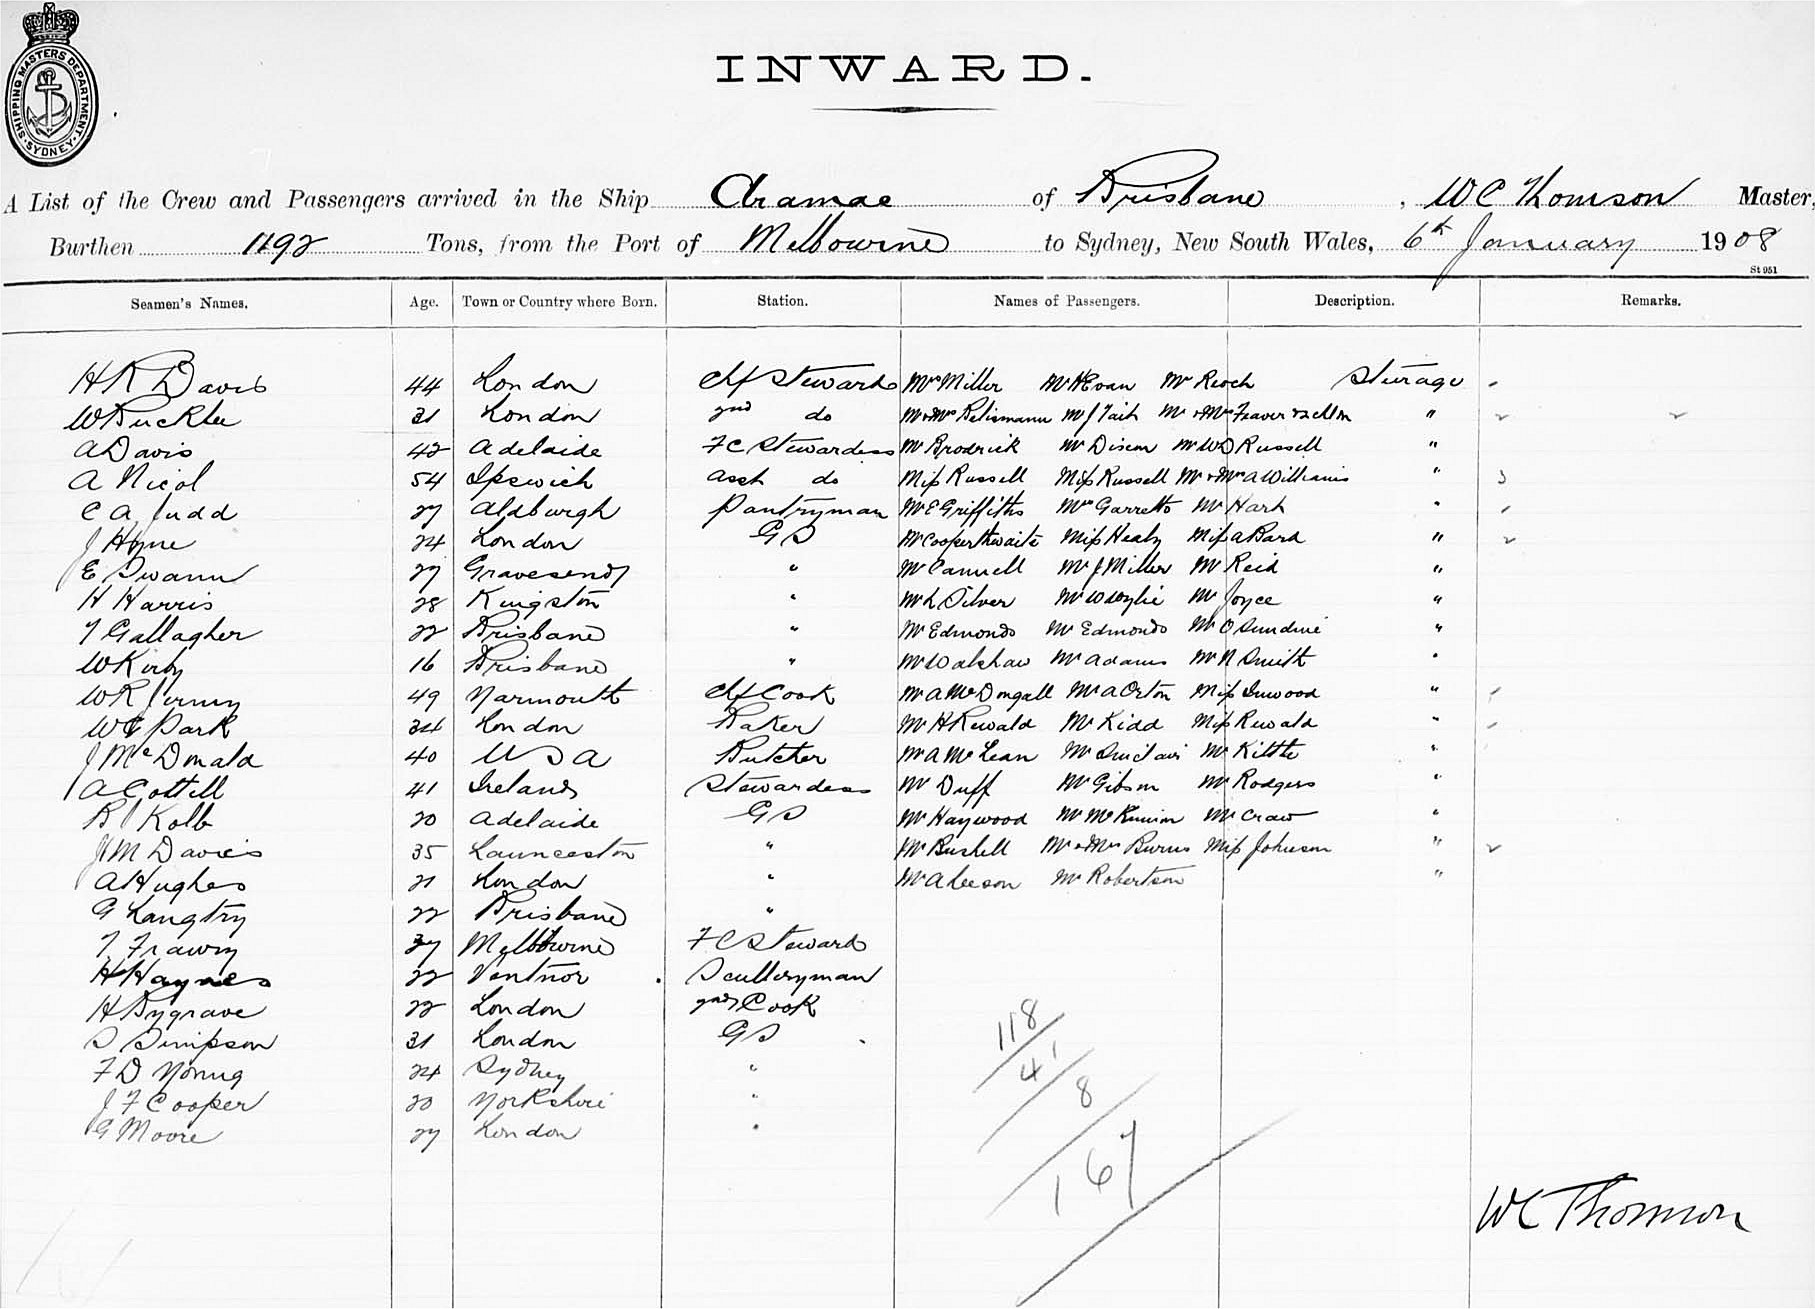 SHIPPING MASTERS DEPARTMENT · SYDNEY ·
INWARD.
A List of the Crew and Passengers arrived in the Ship Aramac of Brisbane, W C Thomson Master,
Burthen 1192 Tons, from the Port of Melbourne to Sydney, New South Wales, 6th January 1908
St 951
Seamen's Names. Age. Town or Country where Born. Station. Names of Passengers. Description. Remarks.
H R Davis 44 London Chf Steward Mrs Miller Mr Reoch Steerage
W Buckle 31 London 2nd do Mr J Tait "
A Davis 42 Adelaide F C Stewardess Mr Broderick Mr Dixon Mr W D Russell "
A Nicol 54 Ipswich Asst do Miss Russell Miss Russell Mr & Mrs A Williams "
C A Judd 27 Aldburgh Pantryman Mr E Griffiths Mrs Garretto Mr Hart "
J Hyne 24 London G S Mr Cooperthwaite Miss Healy Miss A Bard "
E Swann 27 Gravesend " Mr Cannell Mr J Miller Mr Reid "
H Harris 28 Kingston " Mr L Silver Mr W Wylie Mr Joyce "
T Gallagher 22 Brisbane " Mr Edmonds Mr Edmonds Mr O Sundine "
W Kirby 16 Brisbane " Mr Walshaw Mr Adams Mr N Smith "
W R 49 Yarmouth Chf Cook Mr A McDongall Mr A Orton Miss Inwood "
W E Park 34 London Baker Mr H Rewald Mr Kidd Miss Rewald "
J McDonald 40 U S A Butcher Mr A McLean Mr Sinclair Mr Kittle "
A Cottell 41 Ireland Stewardess Mr Duff Mr Gibson Mr Rodgers "
B Kolb 20 Adelaide G S Mr Haywood Mr McKinnon Mr Craw "
H M Davies 35 Launceston " Mr Bushell Mr & Mrs Burns Miss Johnson "
A Hughes 21 London " Mr A Leeson Mr Robertson "
G Langtry 22 Brisbane "
T Frawny 37 Melbourne F C Steward
H Haynes 22 Ventnor Sculleryman
H Bygrave 22 London 2nd Cook
S Simpson 31 London G S
F D Young 24 Sydney "
J F Cooper 20 Yorkshire "
G Moore 27 London "
118
41
8
167
W C Thomson